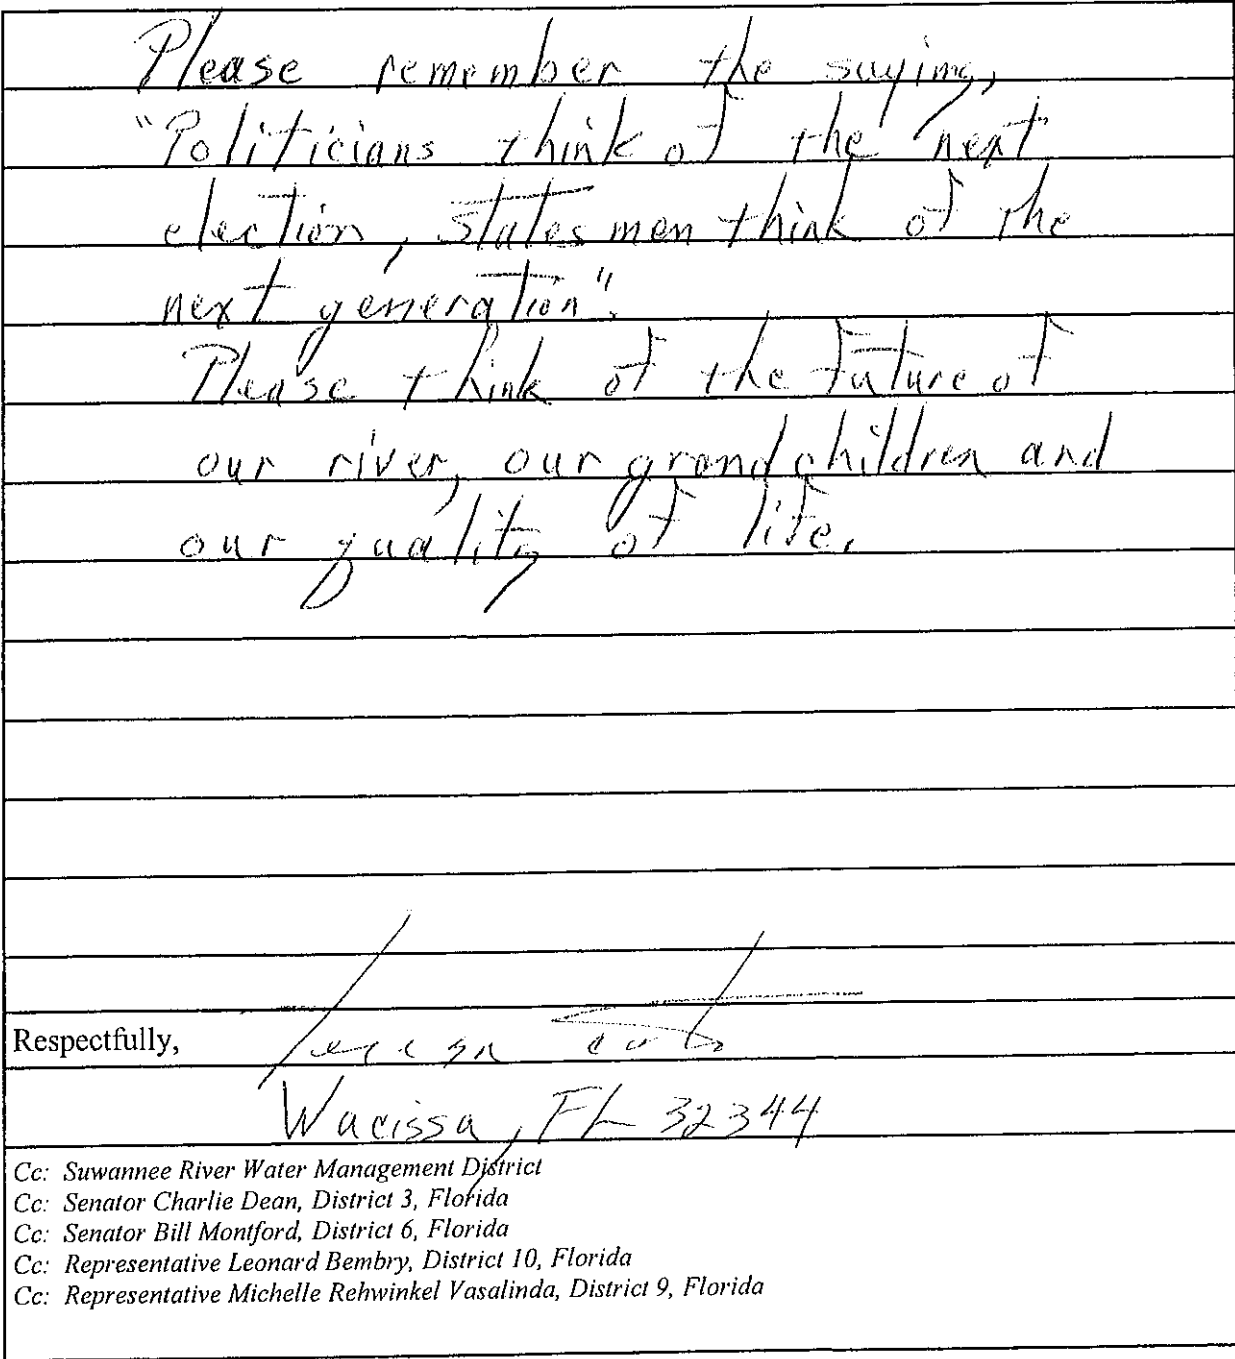 Please remember the saying,
"Politicians think of the next
election, statesmen think of the
next generation".
Please think of the future of
our river, our grandchildren and
our quality of life.
Respectfully,
Wacissa, FL 32344
Cc: Suwannee River Water Management District
Cc: Senator Charlie Dean, District 3, Florida
Cc: Senator Bill Montford, District 6, Florida
Cc: Representative Leonard Bembry, District 10, Florida
Cc: Representative Michelle Rehwinkel Vasalinda, District 9, Florida